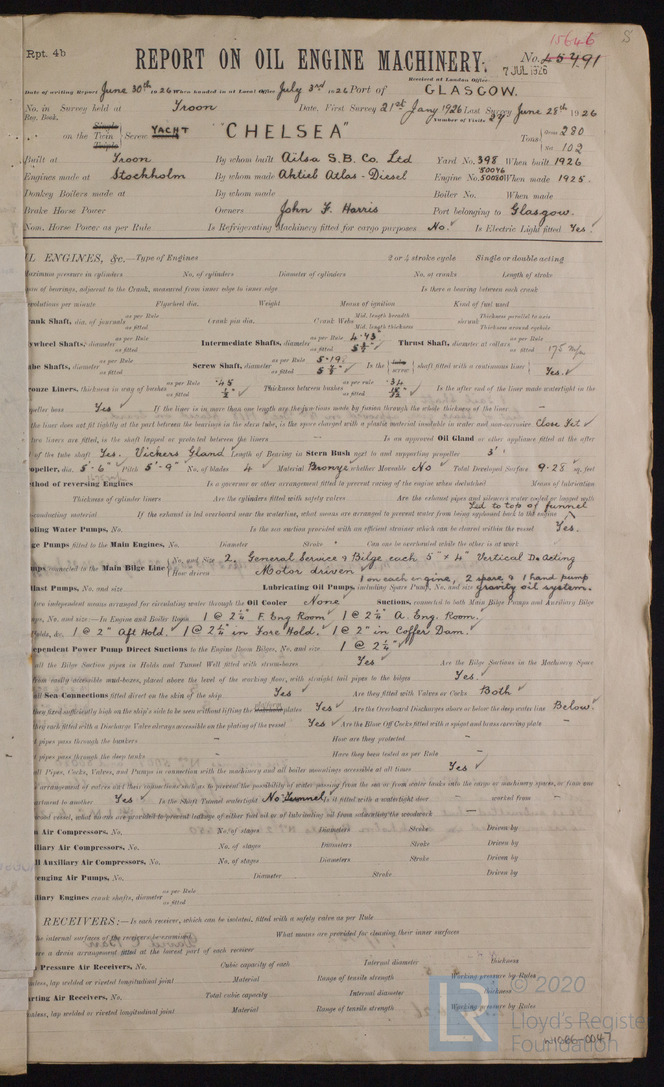 15646
5
Rpt. 4b
REPORT ON OIL ENGINE MACHINERY.
No. 45491
Received at London Office 7 JUL 1926
Date of writing Report June 30th 1926 When handed in at Local Office July 3rd 1926 Port of GLASGOW.
No. in Survey held at Troon Date, First Survey 21st Jany 1926 Last Survey June 28th 1926
Reg. Book. Number of Visits 27
on the Single Twin Triple Screw YACHT "CHELSEA" Tons Gross 280 Net 102
Built at Troon By whom built Ailsa S.B. Co. Ltd Yard No. 398 When built 1926
Engines made at Stockholm By whom made Aktieb Atlas-Diesel Engine No. 50046 50050 When made 1925.
Donkey Boilers made at By whom made Boiler No. When made
Brake Horse Power Owners John F. Harris Port belonging to Glasgow.
Nom. Horse Power as per Rule Is Refrigerating Machinery fitted for cargo purposes No. Is Electric Light fitted Yes.
IL ENGINES, &c.—Type of Engines 2 or 4 stroke cycle Single or double acting
Maximum pressure in cylinders No. of cylinders Diameter of cylinders No. of cranks Length of stroke
pan of bearings, adjacent to the Crank, measured from inner edge to inner edge Is there a bearing between each crank
evolutions per minute Flywheel dia. Weight Means of ignition Kind of fuel used
rank Shaft, dia. of journals as per Rule as fitted Crank pin dia. Crank Webs Mid. length breadth Mid. length thickness shrunk Thickness parallel to axis Thickness around eyehole
lywheel Shafts, diameter as per Rule as fitted Intermediate Shafts, diameter as per Rule 4.93 as fitted 5 1/2" Thrust Shaft, diameter at collars as per Rule as fitted 175 m/m
ube Shafts, diameter as per Rule as fitted Screw Shaft, diameter as per Rule 5.19 as fitted Is the tube screw shaft fitted with a continuous liner Yes.
ronze Liners, thickness in way of bushes as per Rule .45 as fitted 1/2" Thickness between bushes as per rule .34 as fitted Is the after end of the liner made watertight in the
peller boss Yes If the liner is in more than one length are the junctions made by fusion through the whole thickness of the liner -
the liner does not fit tightly at the part between the bearings in the stern tube, is the space charged with a plastic material insoluble in water and non-corrosive Close Fit
two liners are fitted, is the shaft lapped or protected between the liners - Is an approved Oil Gland or other appliance fitted at the after
of the tube shaft Yes. Vickers Gland Length of Bearing in Stern Bush next to and supporting propeller 3'
opeller, dia. 5'-6" Pitch 5'-9" No. of blades 4 Material Bronze whether Moveable No Total Developed Surface 9.28 sq. feet
ethod of reversing Engines Is a governor or other arrangement fitted to prevent racing of the engine when declutched Means of lubrication
Thickness of cylinder liners Are the cylinders fitted with safety valves Are the exhaust pipes and silencers water cooled or lagged with
nconducting material If the exhaust is led overboard near the waterline, what means are arranged to prevent water from being syphoned back to the engine Led to top of funnel
oling Water Pumps, No. Is the sea suction provided with an efficient strainer which can be cleared within the vessel Yes.
ge Pumps fitted to the Main Engines, No. Diameter Stroke Can one be overhauled while the other is at work
mps connected to the Main Bilge Line No. and Size 2, General Service & Bilge each 5" x 4" Vertical D. Acting
How driven Motor driven
llast Pumps, No. and size Lubricating Oil Pumps, including Spare Pump, No. and size 1 on each engine, 2 spare & 1 hand pump gravity oil system.
two independent means arranged for circulating water through the Oil Cooler None Suctions, connected to both Main Bilge Pumps and Auxiliary Bilge
ps, No. and size:—In Engine and Boiler Room 1 @ 2 1/4" F. Eng Room 1 @ 2 1/4 A. Eng. Room.
Holds, &c. 1 @ 2" Aft Hold. 1 @ 2 1/4" in Fore Hold. 1 @ 2" in Coffer Dam.
ependent Power Pump Direct Suctions to the Engine Room Bilges, No. and size 1 @ 2 1/2"
all the Bilge Suction pipes in Holds and Tunnel Well fitted with strum-boxes Yes Are the Bilge Suctions in the Machinery Space
from easily accessible mud-boxes, placed above the level of the working floor, with straight tail pipes to the bilges Yes.
all Sea Connections fitted direct on the skin of the ship Yes Are they fitted with Valves or Cocks Both
they fixed sufficiently high on the ship's side to be seen without lifting the plates Yes Are the Overboard Discharges above or below the deep water line Below.
they each fitted with a Discharge Valve always accessible on the plating of the vessel Yes Are the Blow Off Cocks fitted with a spigot and brass covering plate -
t pipes pass through the bunkers - How are they protected -
t pipes pass through the deep tanks - Have they been tested as per Rule -
all Pipes, Cocks, Valves, and Pumps in connection with the machinery and all boiler mountings accessible at all times Yes
arrangement of valves and their connections such as to prevent the possibility of water passing from the sea or from water tanks into the cargo or machinery spaces, or from one
artment to another Yes Is the Shaft Tunnel watertight No Tunnel. Is it fitted with a watertight door worked from
wood vessel, what means are provided to prevent leakage of either fuel oil or of lubricating oil from saturating the woodwork -
n Air Compressors, No. No. of stages Diameters Stroke Driven by
iliary Air Compressors, No. No. of stages Diameters Stroke Driven by
ll Auxiliary Air Compressors, No. No. of stages Diameters Stroke Driven by
enging Air Pumps, No. Diameter Stroke Driven by
iliary Engines crank shafts, diameter as per Rule as fitted
RECEIVERS:—Is each receiver, which can be isolated, fitted with a safety valve as per Rule
the internal surfaces of the receivers be examined What means are provided for cleaning their inner surfaces
ere a drain arrangement fitted at the lowest part of each receiver
Pressure Air Receivers, No. Cubic capacity of each Internal diameter thickness
mless, lap welded or riveted longitudinal joint Material Range of tensile strength Working pressure by Rules
rting Air Receivers, No. Total cubic capacity Internal diameter thickness
mless, lap welded or riveted longitudinal joint Material Range of tensile strength Working pressure by Rules
© 2020
LR Lloyd's Register Foundation
W1086-0047